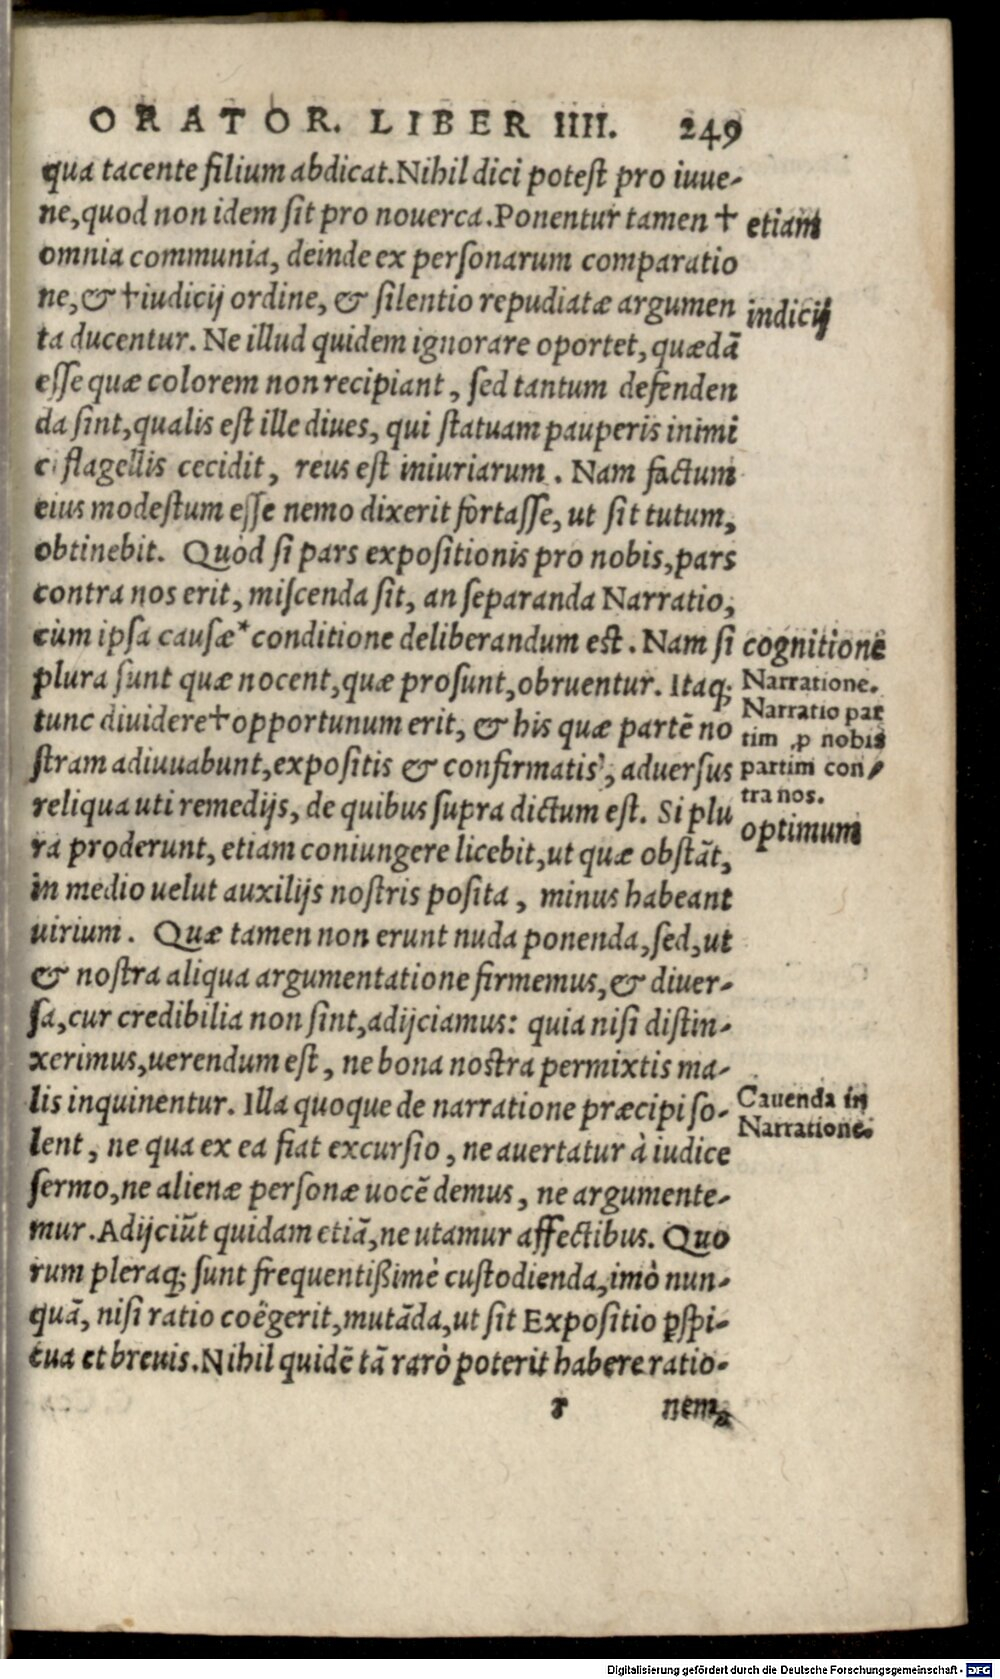 ORATOR. LIBER IIII. 249
qua tacente filium abdicat. Nihil dici potest pro iuue-
ne, quod non idem sit pro nouerca. Ponentur tamen †
omnia communia, deinde ex personarum comparatio
ne, & † iudicij ordine, & silentio repudiatæ argumen
ta ducentur. Ne illud quidem ignorare oportet, quædã
esse quæ colorem non recipiant, sed tantum defenden
da sint, qualis est ille diues, qui statuam pauperis inimi
ci flagellis cecidit, reus est iniuriarum. Nam factum
eius modestum esse nemo dixerit fortasse, ut sit tutum,
obtinebit. Quòd si pars expositionis pro nobis, pars
contra nos erit, miscenda sit, an separanda Narratio,
cùm ipsa causæ * conditione deliberandum est. Nam si
plura sunt quæ nocent, quæ prosunt, obruentur. Itaq;
tunc diuidere † opportunum erit, & his quæ partẽ no
stram adiuuabunt, expositis & confirmatis, aduersus
reliqua uti remedijs, de quibus supra dictum est. Si plu
ra proderunt, etiam coniungere licebit, ut quæ obstãt,
in medio uelut auxilijs nostris posita, minus habeant
uirium. Quæ tamen non erunt nuda ponenda, sed, ut
& nostra aliqua argumentatione firmemus, & diuer-
sa, cur credibilia non sint, adijciamus: quia nisi distin-
xerimus, uerendum est, ne bona nostra permixtis ma-
lis inquinentur. Illa quoque de narratione præcipi so-
lent, ne qua ex ea fiat excursio, ne auertatur à iudice
sermo, ne alienæ personæ uocẽ demus, ne argumente-
mur. Adijciũt quidam etiã, ne utamur affectibus. Quo
rum pleraq; sunt frequentißimè custodienda, imò nun-
quã, nisi ratio coëgerit, mutãda, ut sit Expositio ꝑspi-
cua et breuis. Nihil quidẽ tã rarò poterit habere ratio-
r nem,
etiam
indicij
cognitione
Narratione.
Narratio par
tim ꝓ nobis
partim con-
tra nos.
optimum
Cauenda in
Narratione.
Digitalisierung gefördert durch die Deutsche Forschungsgemeinschaft - DFG